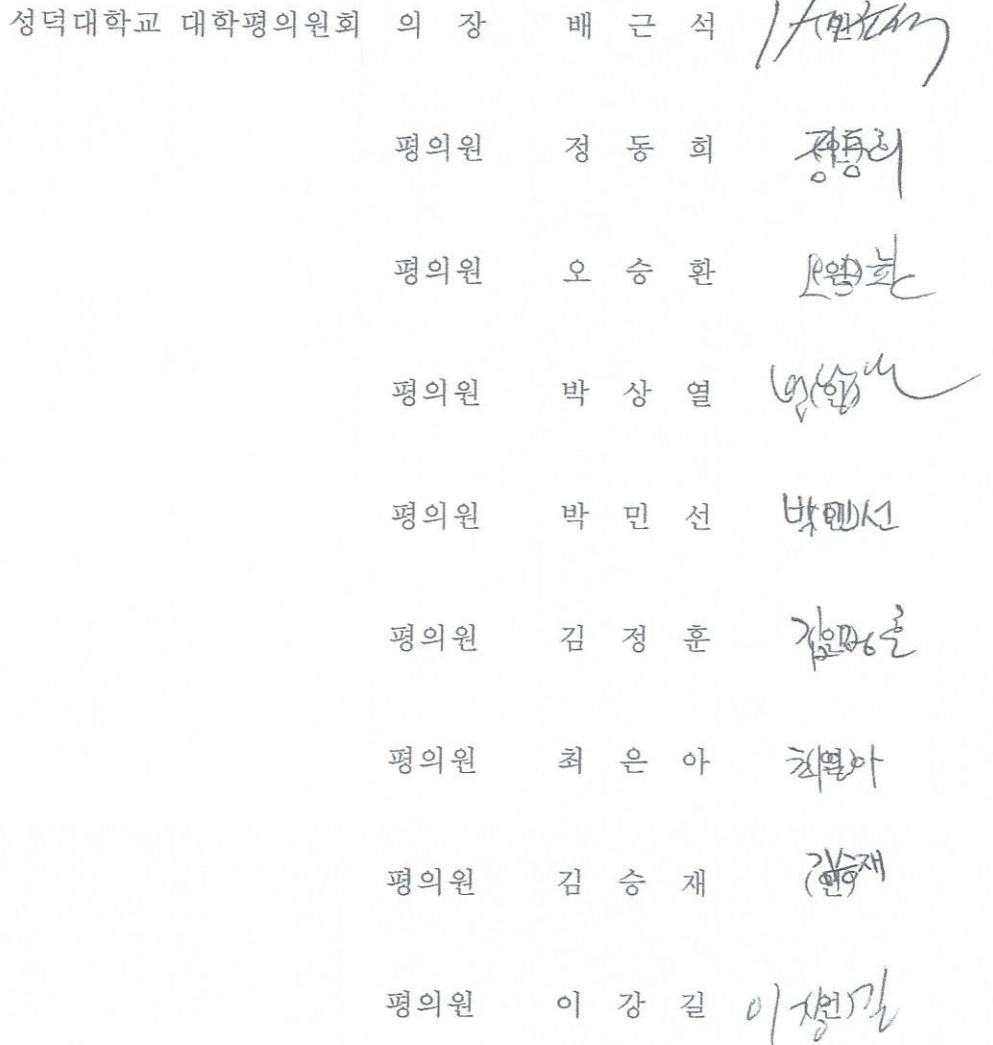 성덕대학교 대학평의원회 의 장 배 근 석 (인)
평의원 정 동 희 (인) 정동희
평의원 오 승 환 (인)
평의원 박 상 열 (인)
평의원 박 민 선 (인) 박민선
평의원 김 정 훈 (인) 김정훈
평의원 최 은 아 (인) 최은아
평의원 김 승 재 (인) 김승재
평의원 이 강 길 (인) 이강길